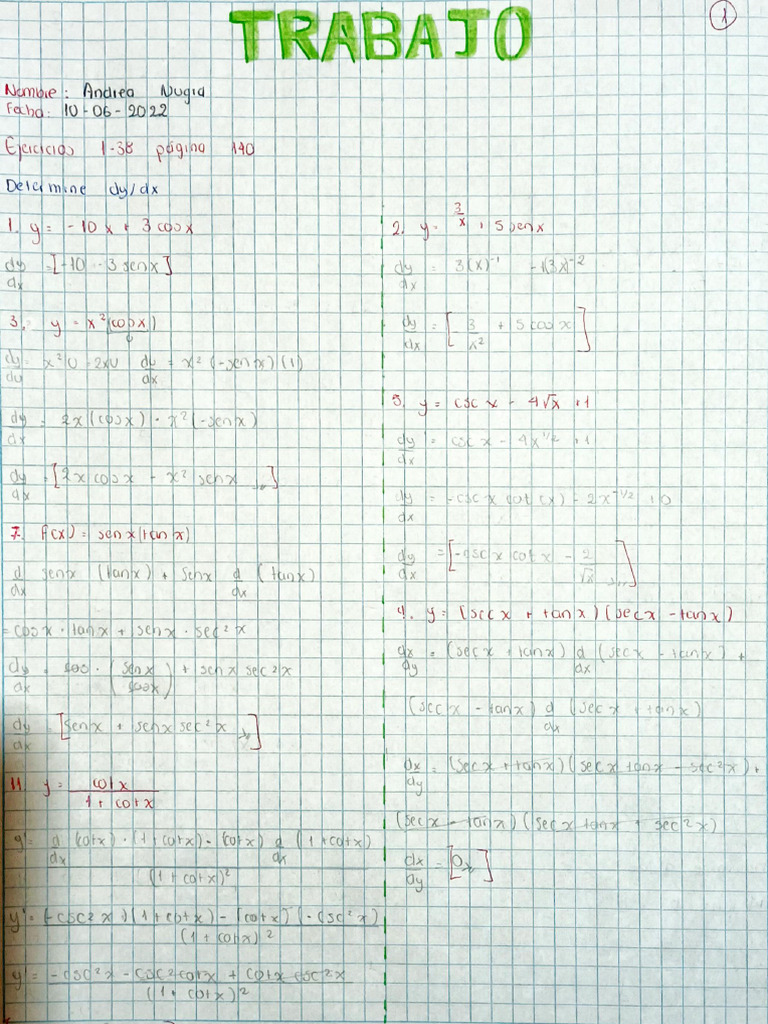 1
TRABAJO
Nombre: Andrea Nugra
Fecha: 10-06-2022
Ejercicios 1-38 página 140
Determine dy/dx
1. y = -10x + 3 cosx
dy/dx = [-10 - 3 senx]
3. y = x² (cosx)
x²U 2xU dy/dx = x² (-senx)(1)
dy/dx = 2x (cosx) · x² (-senx)
dy/dx = [2x cosx - x² senx]
7. f(x) = senx (tanx)
d/dx senx (tanx) + senx d/dx (tanx)
= cosx · tanx + senx · sec²x
dy/dx = cos · (senx/cosx) + senx sec²x
dy/dx = [senx + senx sec²x]
11. y = cotx / 1 + cotx
y' = d/dx (cotx) · (1 + cotx) - (cotx) d/dx (1 + cotx) / (1 + cotx)²
y' = (-csc²x)(1 + cotx) - (cotx)(-csc²x) / (1 + cotx)²
y' = -csc²x - csc²cotx + cotx csc²x / (1 + cotx)²
2. y = 3/x + 5 senx
dy/dx 3(x)⁻¹ -1(3x)⁻²
dy/dx = [-3/x² + 5 cosx]
5. y = csc x - 4√x + 1
dy/dx = csc x - 4x^1/2 + 1
dy/dx = -csc x cot (x) - 2x^-1/2 + 0
dy/dx = [-csc x cot x - 2/√x]
9. y = (sec x + tan x) (sec x - tan x)
dx/dy = (sec x + tan x) d/dx (sec x - tan x) +
(sec x - tan x) d/dx (sec x + tan x)
dx/dy = (sec x + tan x) (sec x tan x - sec²x) +
(sec x - tan x) (sec x tan x + sec²x)
dx/dy = [0]